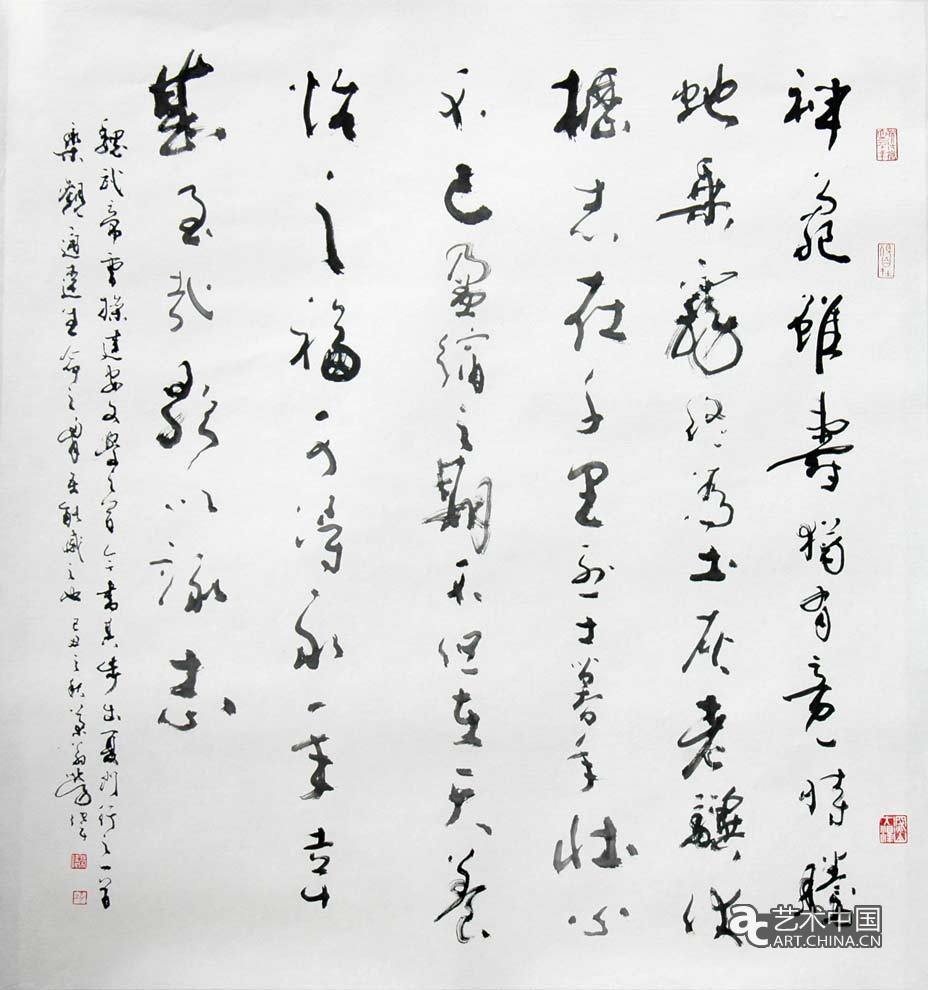 神龜雖壽猶有竟時騰
蛇乘霧終為土灰老驥伏
櫪志在千里烈士暮年壯心
不已盈縮之期不但在天養
怡之福可得永年幸
甚至哉歌以詠志
魏武帝曹操建安文學之首今書其步出夏門行之一首
樂觀通達生命之能感之也己丑之秋
艺术中国
ART.CHINA.CN